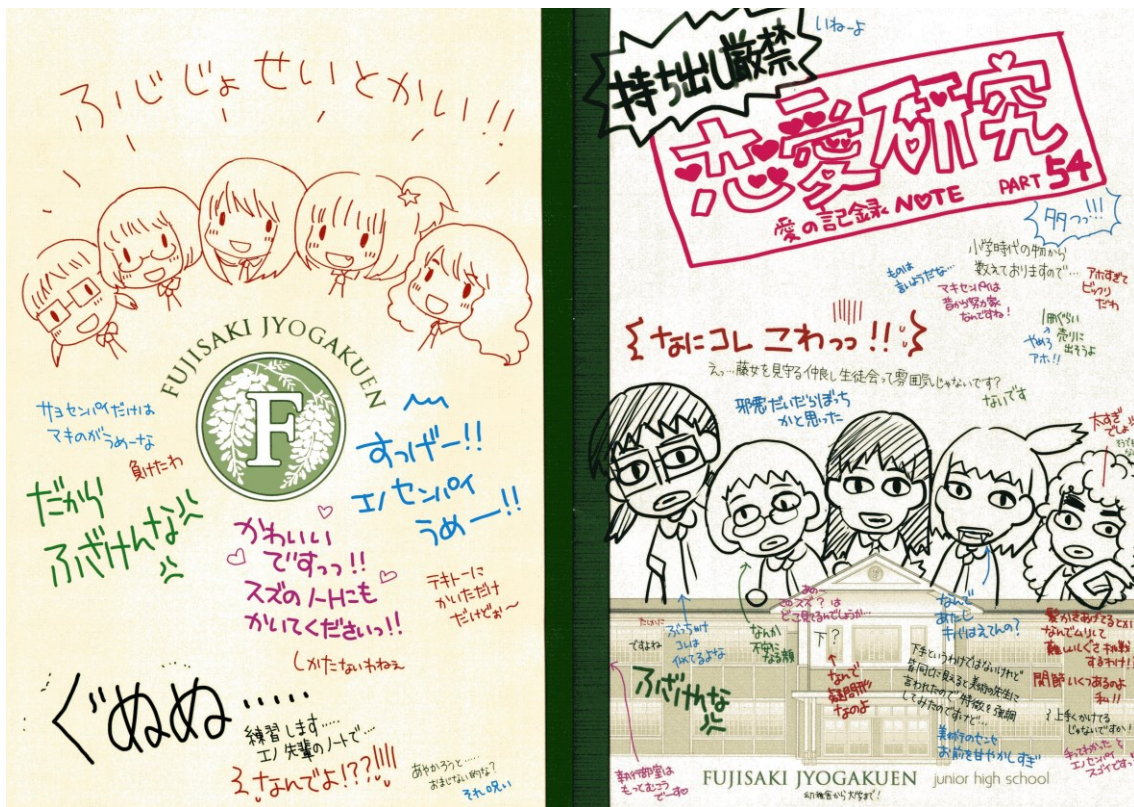 ふじじょせいとかい!!
FUJISAKI JYOGAKUEN
F
サヨセンパイだけは
マキのがうめーな
負けたわ
だから
ふざけんな
すっげー!!
エノセンパイ
うめー!!
かわいい
ですっっ!!
スズのノートにも
かいてくださいっ!!
テキトーに
かいただけ
だけどぉ〜
しかたないわねぇ
ぐぬぬ……
練習します……
エノ先輩のノートで…
なんでよ!??!!!!
あやかろうと……
おまじない的な?
それ呪い
持ち出し厳禁
いねーよ
恋愛研究
愛の記録 NOTE PART 54
多っっ!!!
小学時代の物から
数えておりますので…
アホすぎて
ビックリ
だわ
ものは
言いようだな…
マキセンパイは
昔から努力家
なんですね!
1冊ぐらい
売りに
出そうよ
やめろ
アホ!!
なにコレ こわっっ!!
えっ…藤女を見守る仲良し生徒会って雰囲気じゃないです?
ないです
邪悪だいだらぼっち
かと思った
太すぎ
でしょ
あの〜
このスズ?は
どこ見てるんでしょうか…
たしかに
ですよね
ぶっちゃけ
コレは
似てるよな
なんか
不安に
なる顔
ふざけんな
下?
なんで
疑問形
なのよ
なんで
あたし
キバはえてんの?
下手というわけではないけれど
皆同じに見えると美術の先生に
言われたので特徴を強調
してみたのですけど…
美術のセンセ
お前を甘やかしすぎ
髪かきあげてるとか
なんでムリして
難しいしぐさ挑戦
するわけ!!
関節いくつあるのよ
私!!
上手くかけてる
じゃないですか!
エノセンパイ
スゴイですっ
執行部室は
もっとむこう
でーす
FUJISAKI JYOGAKUEN junior high school
幼稚舎から大学まで!